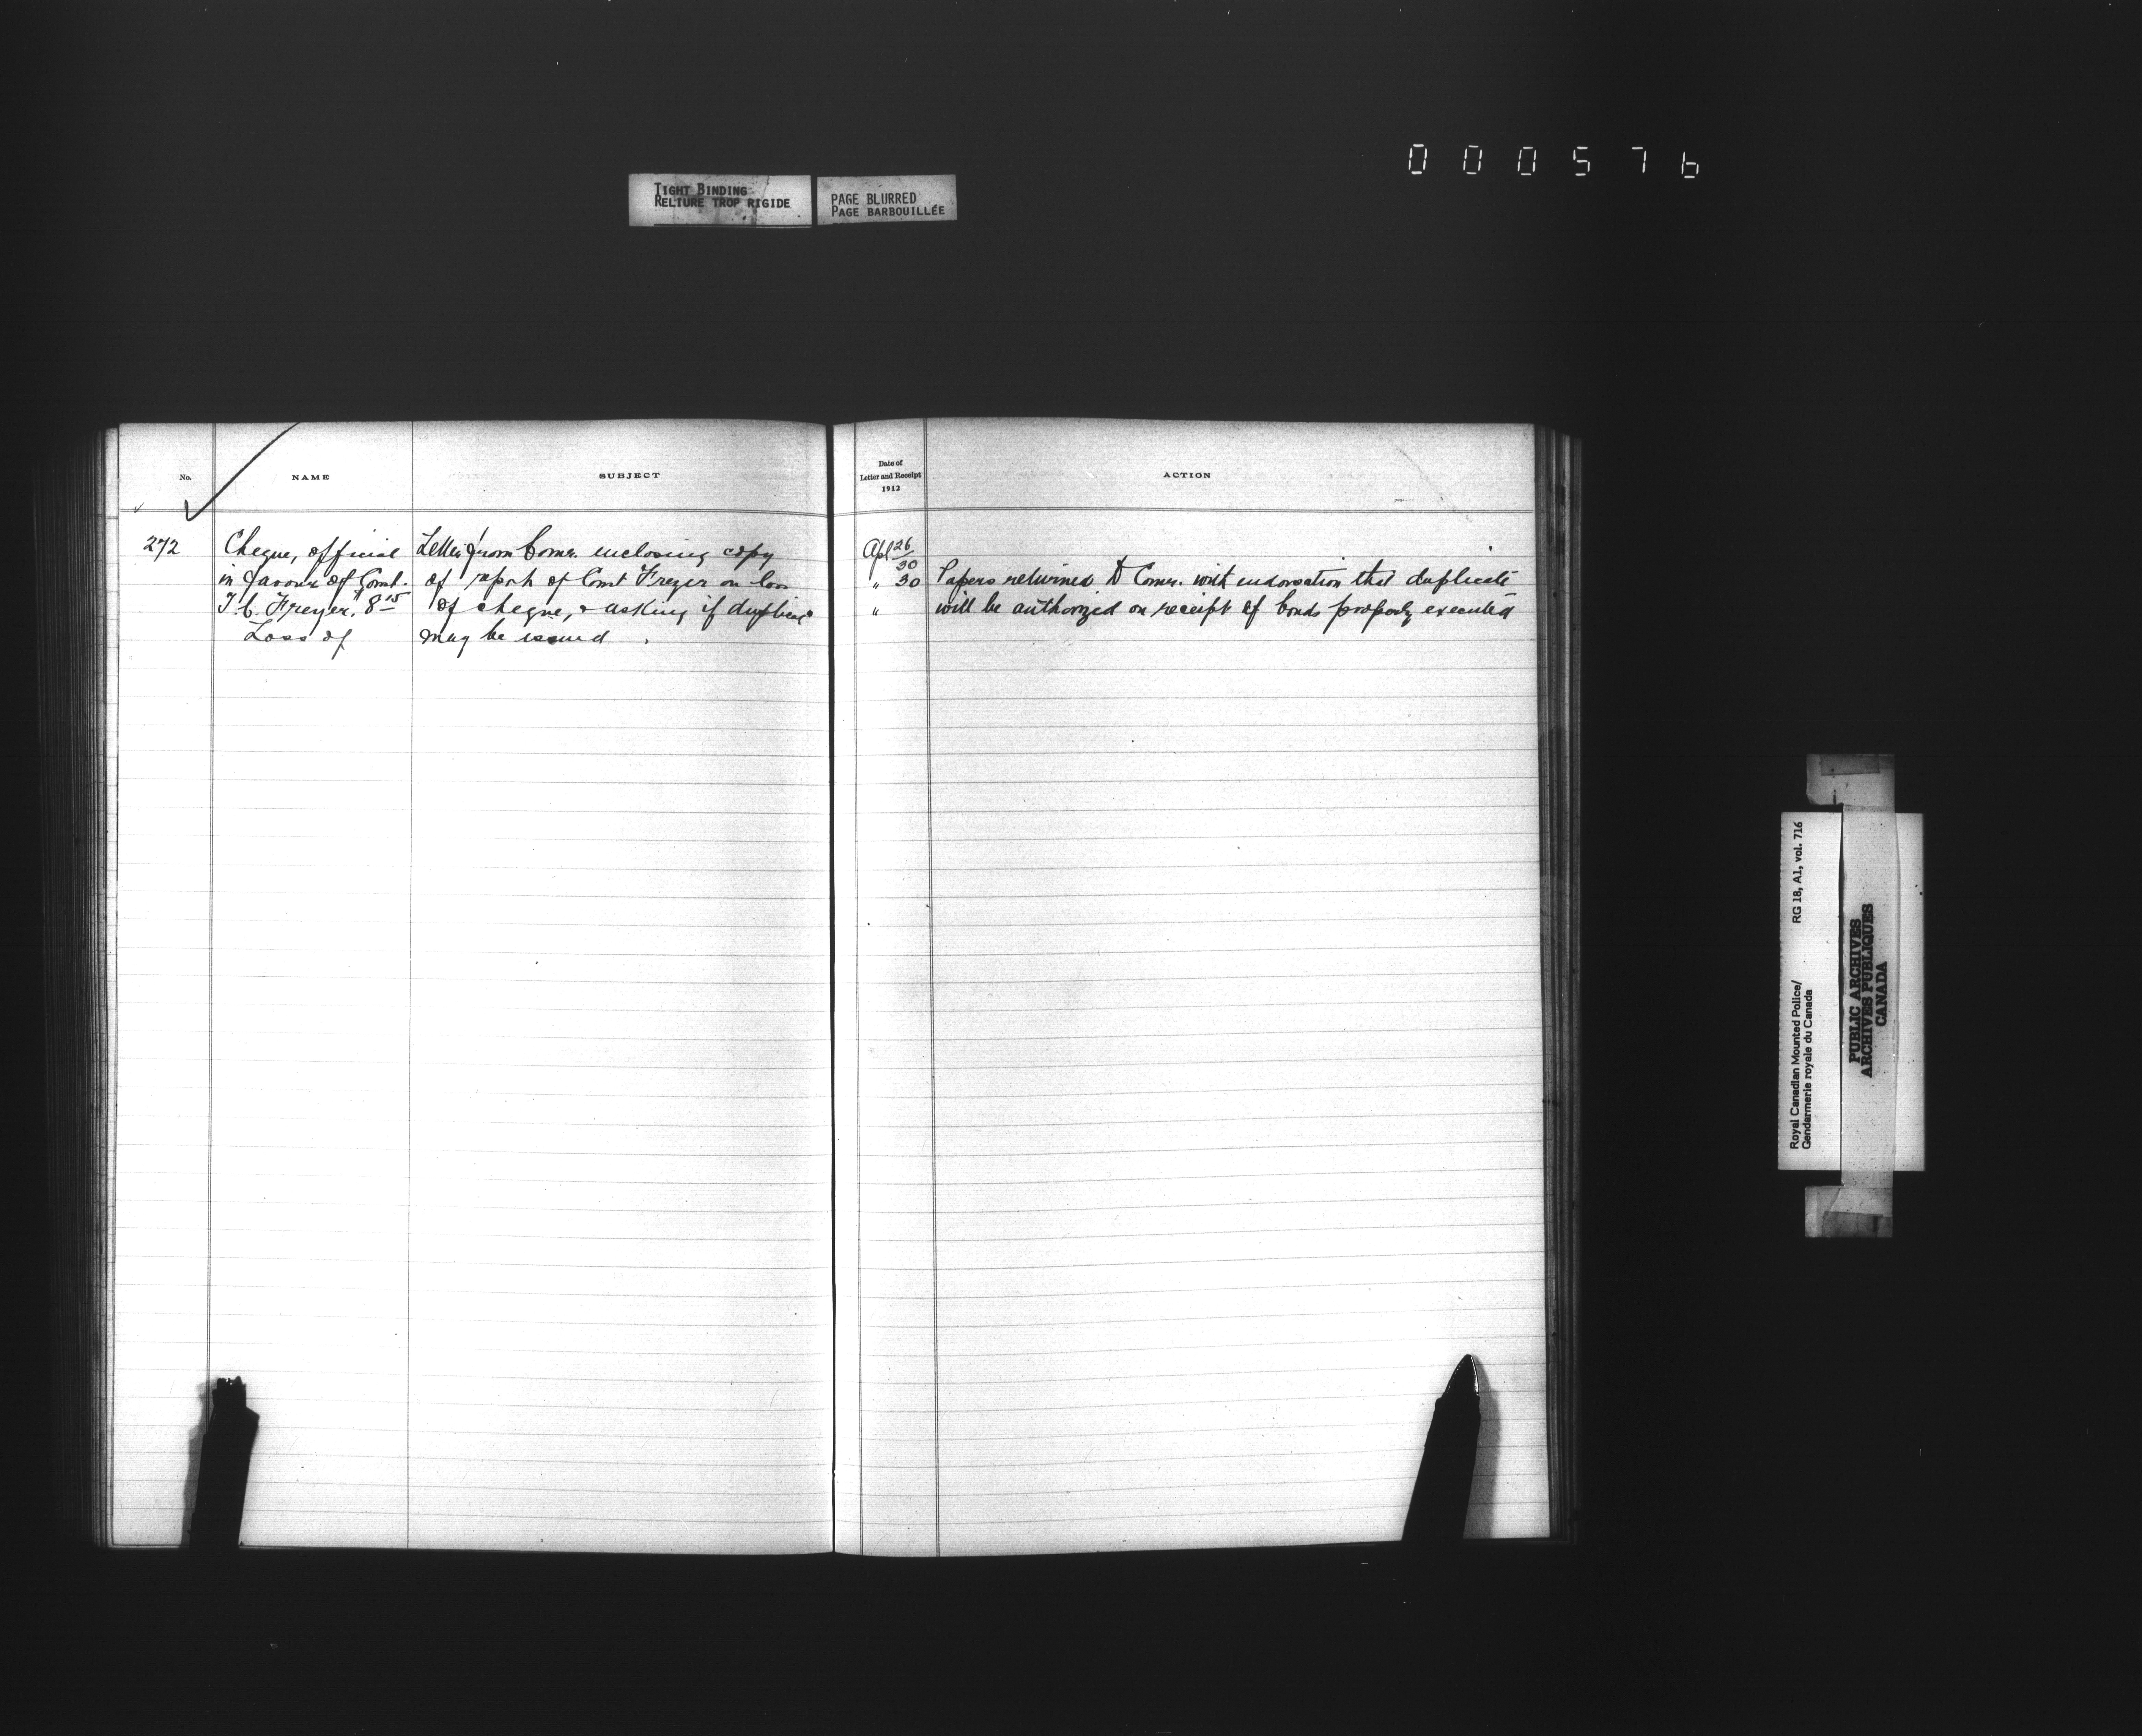 000576
TIGHT BINDING
RELIURE TROP RIGIDE
PAGE BLURRED
PAGE BARBOUILLÉE
No.
NAME
SUBJECT
Date of
Letter and Receipt
1912
ACTION
272
Cheque, official
in favour of Const.
T.C. Frezer, $8 15
Loss of
Letter from Comr. enclosing copy
of report of Const Frezer on loss
of cheque, & asking if duplicate
may be issued.
Apl 26
30
" 30
"
Papers returned to Comr. with endorsation that duplicate
will be authorized on receipt of bonds properly executed
Royal Canadian Mounted Police/
Gendarmerie royale du Canada
RG 18, A1, vol. 716
PUBLIC ARCHIVES
ARCHIVES PUBLIQUES
CANADA